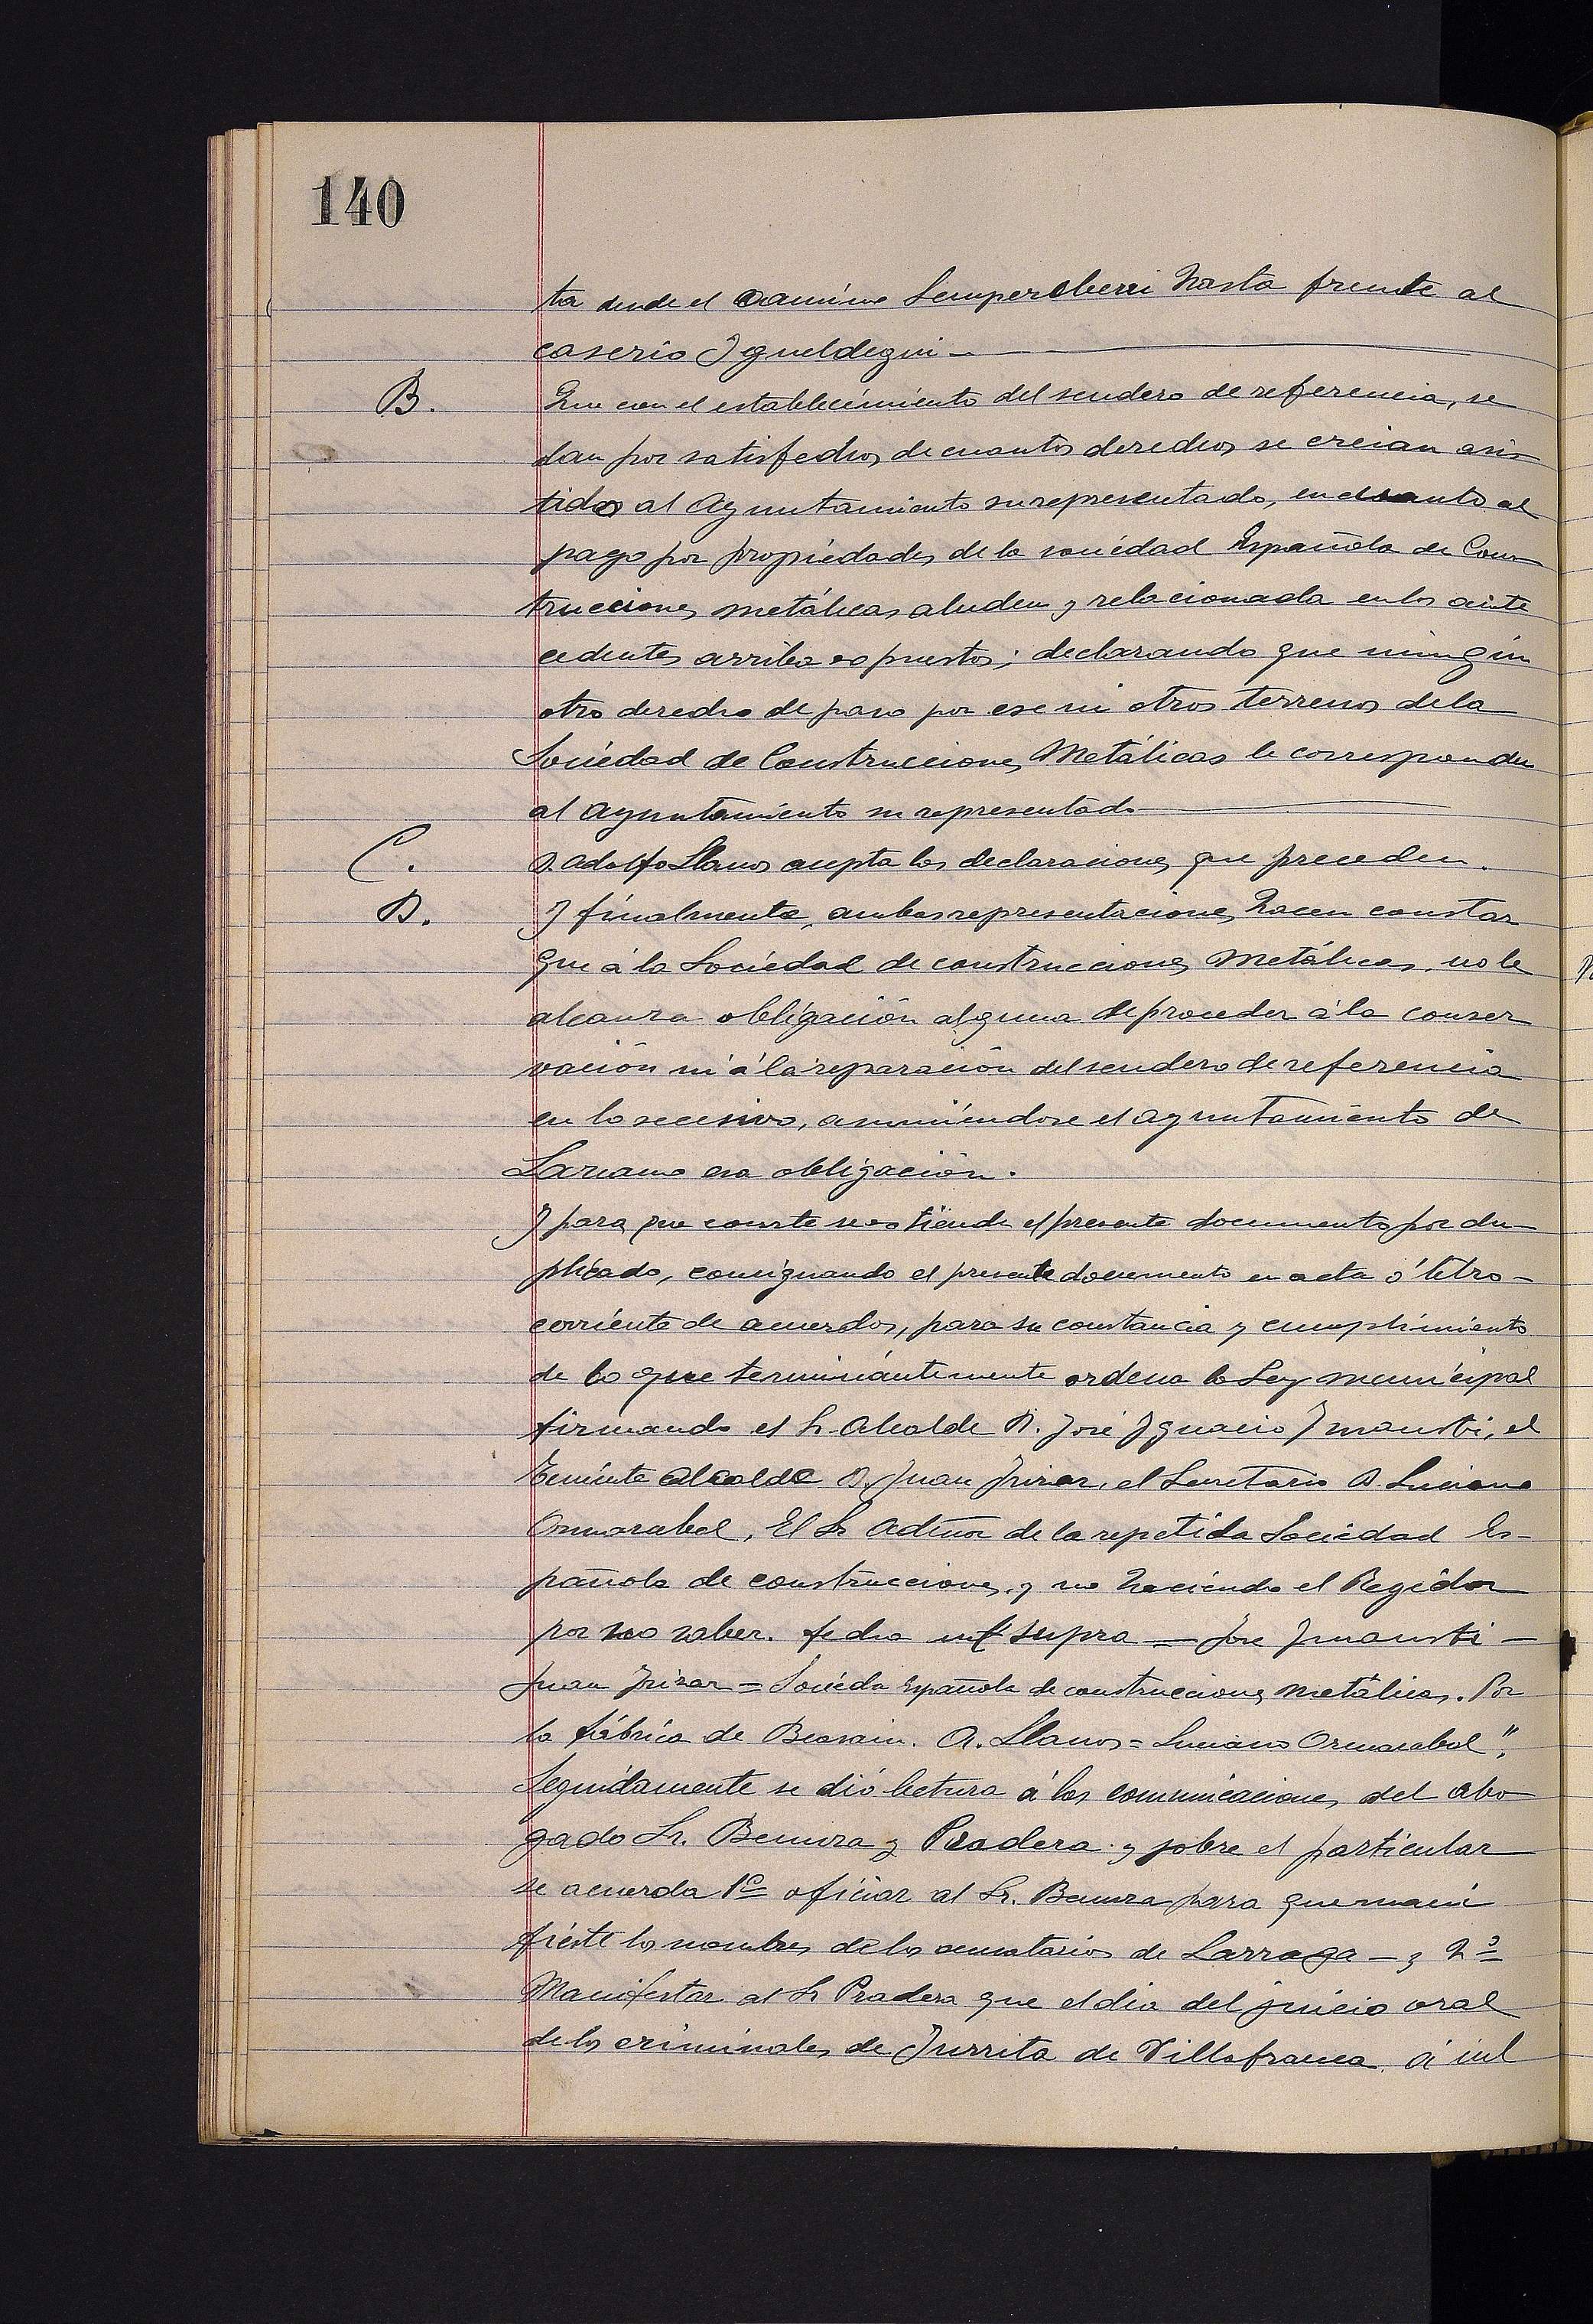 140
ta desde el camino Semperoberri hasta frente al
caserio Igueldegui —
B. Que con el establecimiento del sendero de referencia, se
dan por satisfechos de cuantos derechos se creian asis-
tidos al Ayuntamiento su representado, en cuanto al
pago por propiedades de la sociedad Española de Cons
trucciones metálicas aluden y relacionada en los ante
cedentes arriba expuestos; declarando que ningún
otro derecho de paso por ese ni otros terrenos de la
Sociedad de Construcciones Metálicas le corresponden
al Ayuntamiento su representado —
C. D. Adolfo Llanos acepta las declaraciones que preceden.
D. Y finalmente, ambas representaciones hacen constar
que á la Sociedad de construcciones Metálicas, no le
alcanza obligación alguna de proceder á la conser
vación ni á la reparación del sendero de referencia
en lo sucesivo, asumiéndose el ayuntamiento de
Lazcano esa obligación.
Y para que conste se extiende el presente documento por du-
plicado, consignando el presente documento en acta ó libro-
corriente de acuerdos, para su constancia y cumplimiento
de lo que terminantemente ordena la Ley municipal
firmando el Sr Alcalde D. José Ignacio Imausti, el
Teniente Alcalde D. Juan Irizar, el Secretario D. Luciano
Ormazabal, El Sr Adtior de la repetida Sociedad Es-
pañola de construcciones, y no haciendo el Regidor
por no saber. fecha ut supra = Jose Imausti -
Juan Irizar = Socieda Española de construcciones metálicas. Por
la fábrica de Beasain. A. Llanos = Luciano Ormazabal".
Seguidamente se dió lectura á las comunicaciones del abo
gado Sr. y Pradera y sobre el particular
se acuerda 1º oficiar al Sr. para que mani
fieste los nombres de los de Larraga — y 2º
Manifestar al Sr Pradera que el dia del juicio oral
de los criminales de Iurrita de Villafranca, á